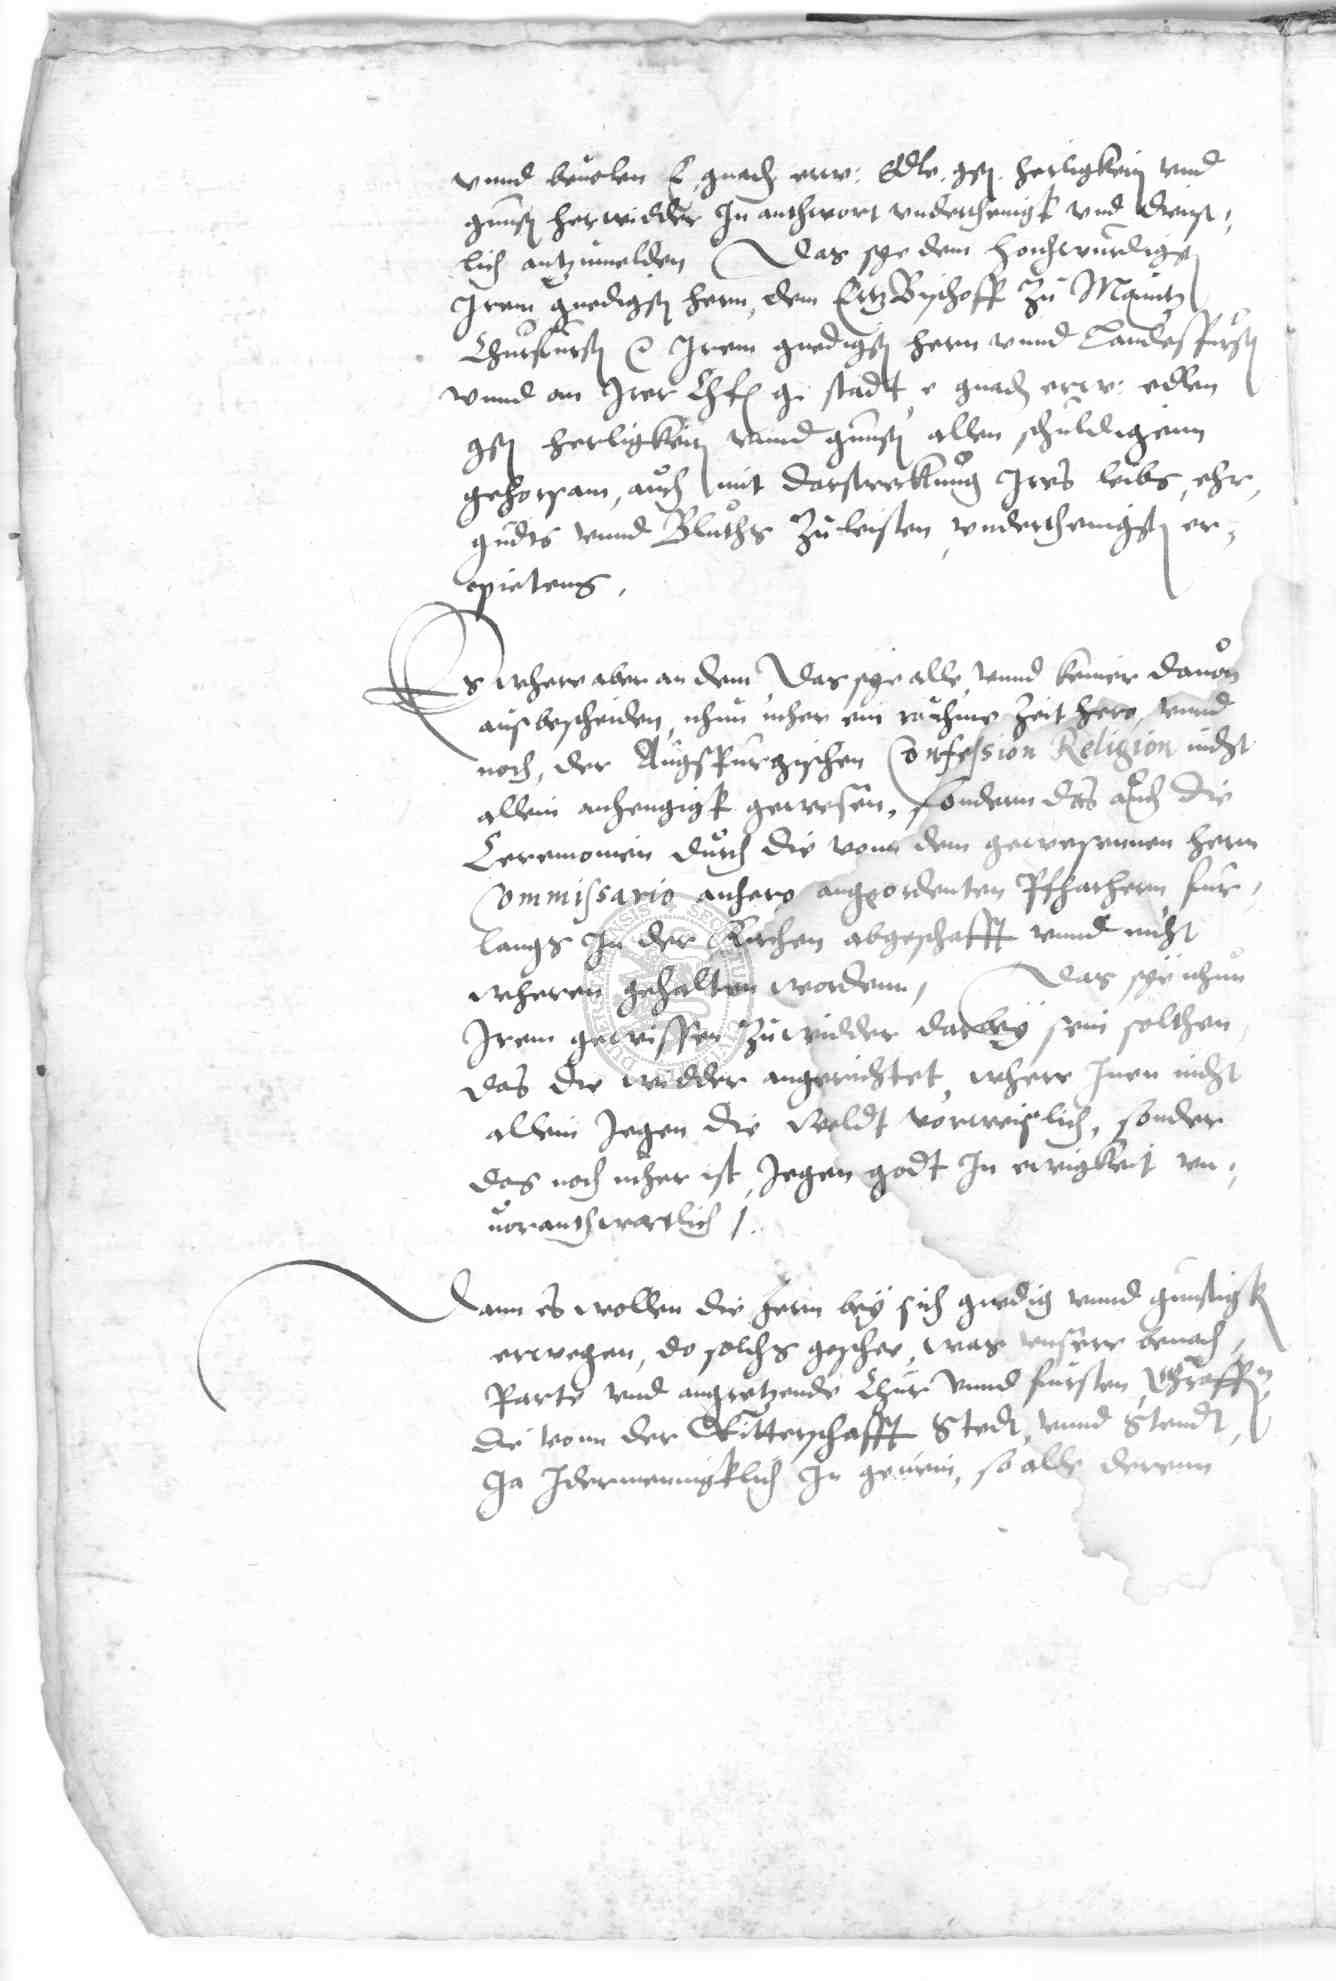 vnnd beuolen E. gnad. erw: Edle. gst. herligkeit vnd
gunst herwidder In anthwort vnderthenigk vnd dienst,
lich antzumelden Das sye dem hochwurdigst
Irem gnedigst hern, dem ErtzBischoff Zu Maintz
Churfurst Irem gnedigst hern vnnd Landesfurst
vnnd an Irer Chf g. stadt e gnad erw: edlen
gst herligkeit vnnd gunst allen schuldigenn
gehorsam, auch mit darstreckung Ires leibs, ehr,
gudts vnnd Bluths Zu leisten, vnderthenigst er,
pietens,
Es where aber an dem, Das sye alle, vnnd keiner dauon
ausbescheiden, nhun mher ein raume Zeit hero, vnnd
noch, der Augspurgischen Confession Religion nicht
allein anhengigk gewesen, sondern das auch die
Ceremonien durch die vonn dem gewesennen hern
Commissario anhero angeordenten Pfharhern, fur,
langs In der Kirchen abgeschafft vnnd nicht
wheren gehalten wordenn, Das sye nhun
Irem gewissen Zuwidder darbey sein solthen,
das die widder angerichtet, where Inen nicht
allein Jegen die Weldt vorweislich, sonder
das noch mher ist, Jegen godt In ewigkeit vn,
uoranthwortlich /.
Dann es wollen die hern bey sich gnedig vnnd gunstigk
erwegen, do solchs geschee, was vnsere benach,
Parte vnd angretzende Chur vnnd fursten, Graffen
die vonn der Ritterschafft Stedt, vnnd Stendt,
Ja Idermennigklich In gemein, so alle derenn